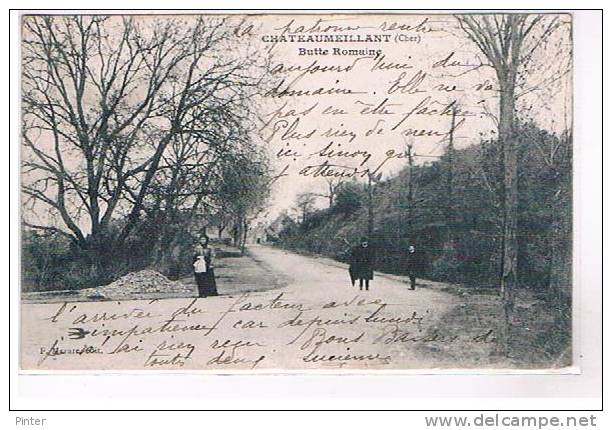 la patronne rentre
CHATEAUMEILLANT (Cher)
Butte Romaine
aujourd'hui du
domaine. Elle ne va
pas en être fachée
Plus rien de neuf
ici sinon que
j'attends
l'arrivée du facteur avec
impatience car depuis lundi
j'ai rien reçu Bons Baisers de
toutes deux Lucienne
Pinter
www.delcampe.net